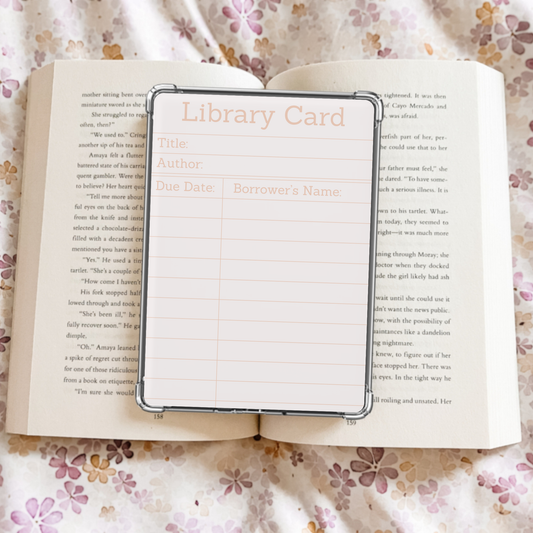 mother sitting bent ove
miniature sword as she s
She struggled to reg
often, then?"
"We used to." Cring
another sip of his tea and
Amaya felt a flutter
battered state of his carria
quent gambler. Were the
to believe? Her heart quic
"Tell me more about
ful eyes on the back of h
from the knife and insta
selected a chocolate-driz
filled with a decadent cre
mentioned you have a sist
"Yes." He used a tiny
tartlet. "She's a couple of
"How come I haven't
His fork stopped half
lowed through and took a
"She's been ill," he s
fully recover soon." He ga
disople.
"Oh." Amaya leaned
a spike of regret cut throu
for one of those ridiculous
from a book on etiquette,
"I'm sure she would
159
Library Card
Title:
Author:
Due Date: Borrower's Name:
s tightened. It was then
of Cayo Mercado and
, was afraid.
elfish part of her, per-
he could use that to her
ur father must feel," she
e dared. "To have some-
ch a serious illness. It is
own to his tartlet. What-
m today, they seemed to
right—it was much more
ming through Moray; she
doctor when they docked
ade the girl likely had ash
wait until she could use it
dn't want the news public.
ow, with the possibility of
uaintances like a dandelion
ng nightmare.
knew, to figure out if her
face stopped her. There was
eyes. In the tight way he
ill roiling and unsated. Her
159